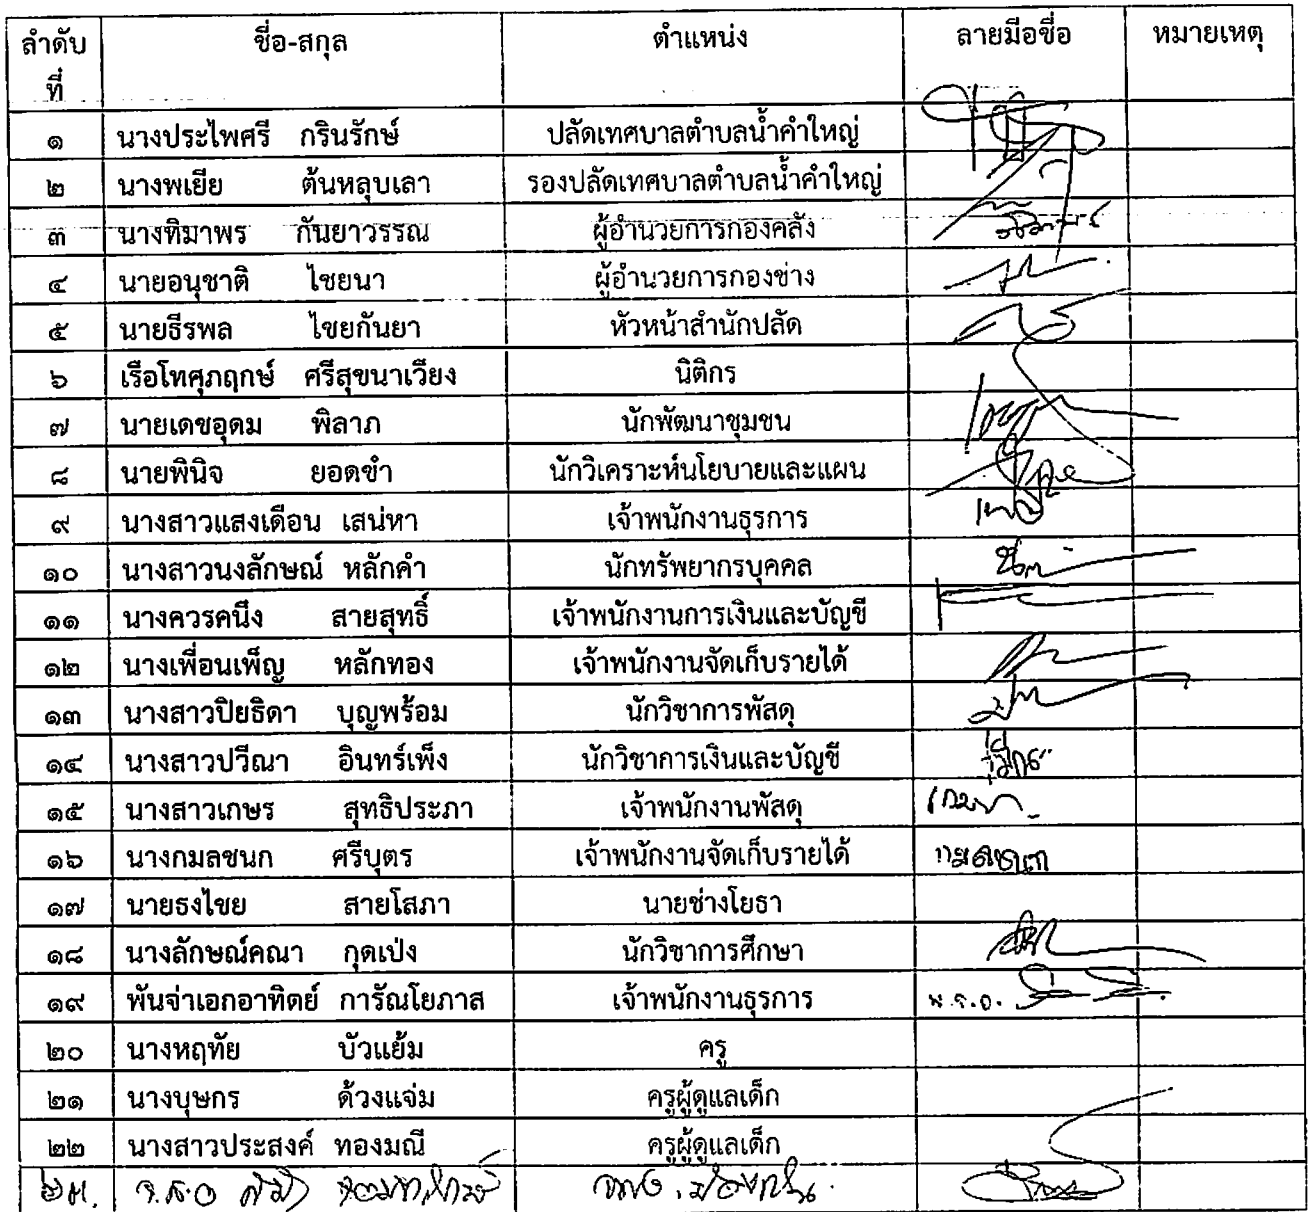 ลำดับที่ ชื่อ-สกุล ตำแหน่ง ลายมือชื่อ หมายเหตุ
๑ นางประไพศรี กรินรักษ์ ปลัดเทศบาลตำบลน้ำคำใหญ่
๒ นางพเยีย ต้นหลุบเลา รองปลัดเทศบาลตำบลน้ำคำใหญ่
๓ นางทิมาพร กันยาวรรณ ผู้อำนวยการกองคลัง
๔ นายอนุชาติ ไชยนา ผู้อำนวยการกองช่าง
๕ นายธีรพล ไชยกันยา หัวหน้าสำนักปลัด
๖ เรือโทศุภฤกษ์ ศรีสุขนาเวียง นิติกร
๗ นายเดชอุดม พิลาภ นักพัฒนาชุมชน
๘ นายพินิจ ยอดขำ นักวิเคราะห์นโยบายและแผน
๙ นางสาวแสงเดือน เสน่หา เจ้าพนักงานธุรการ
๑๐ นางสาวนงลักษณ์ หลักคำ นักทรัพยากรบุคคล
๑๑ นางควรคนึง สายสุทธิ์ เจ้าพนักงานการเงินและบัญชี
๑๒ นางเพื่อนเพ็ญ หลักทอง เจ้าพนักงานจัดเก็บรายได้
๑๓ นางสาวปิยธิดา บุญพร้อม นักวิชาการพัสดุ
๑๔ นางสาวปวีณา อินทร์เพ็ง นักวิชาการเงินและบัญชี
๑๕ นางสาวเกษร สุทธิประภา เจ้าพนักงานพัสดุ
๑๖ นางกมลชนก ศรีบุตร เจ้าพนักงานจัดเก็บรายได้ กมลชนก
๑๗ นายธงไขย สายโสภา นายช่างโยธา
๑๘ นางลักษณ์คณา กุดเป่ง นักวิชาการศึกษา
๑๙ พันจ่าเอกอาทิตย์ การัณโยภาส เจ้าพนักงานธุรการ
๒๐ นางหฤทัย บัวแย้ม ครู
๒๑ นางบุษกร ด้วงแจ่ม ครูผู้ดูแลเด็ก
๒๒ นางสาวประสงค์ ทองมณี ครูผู้ดูแลเด็ก
๒๓.